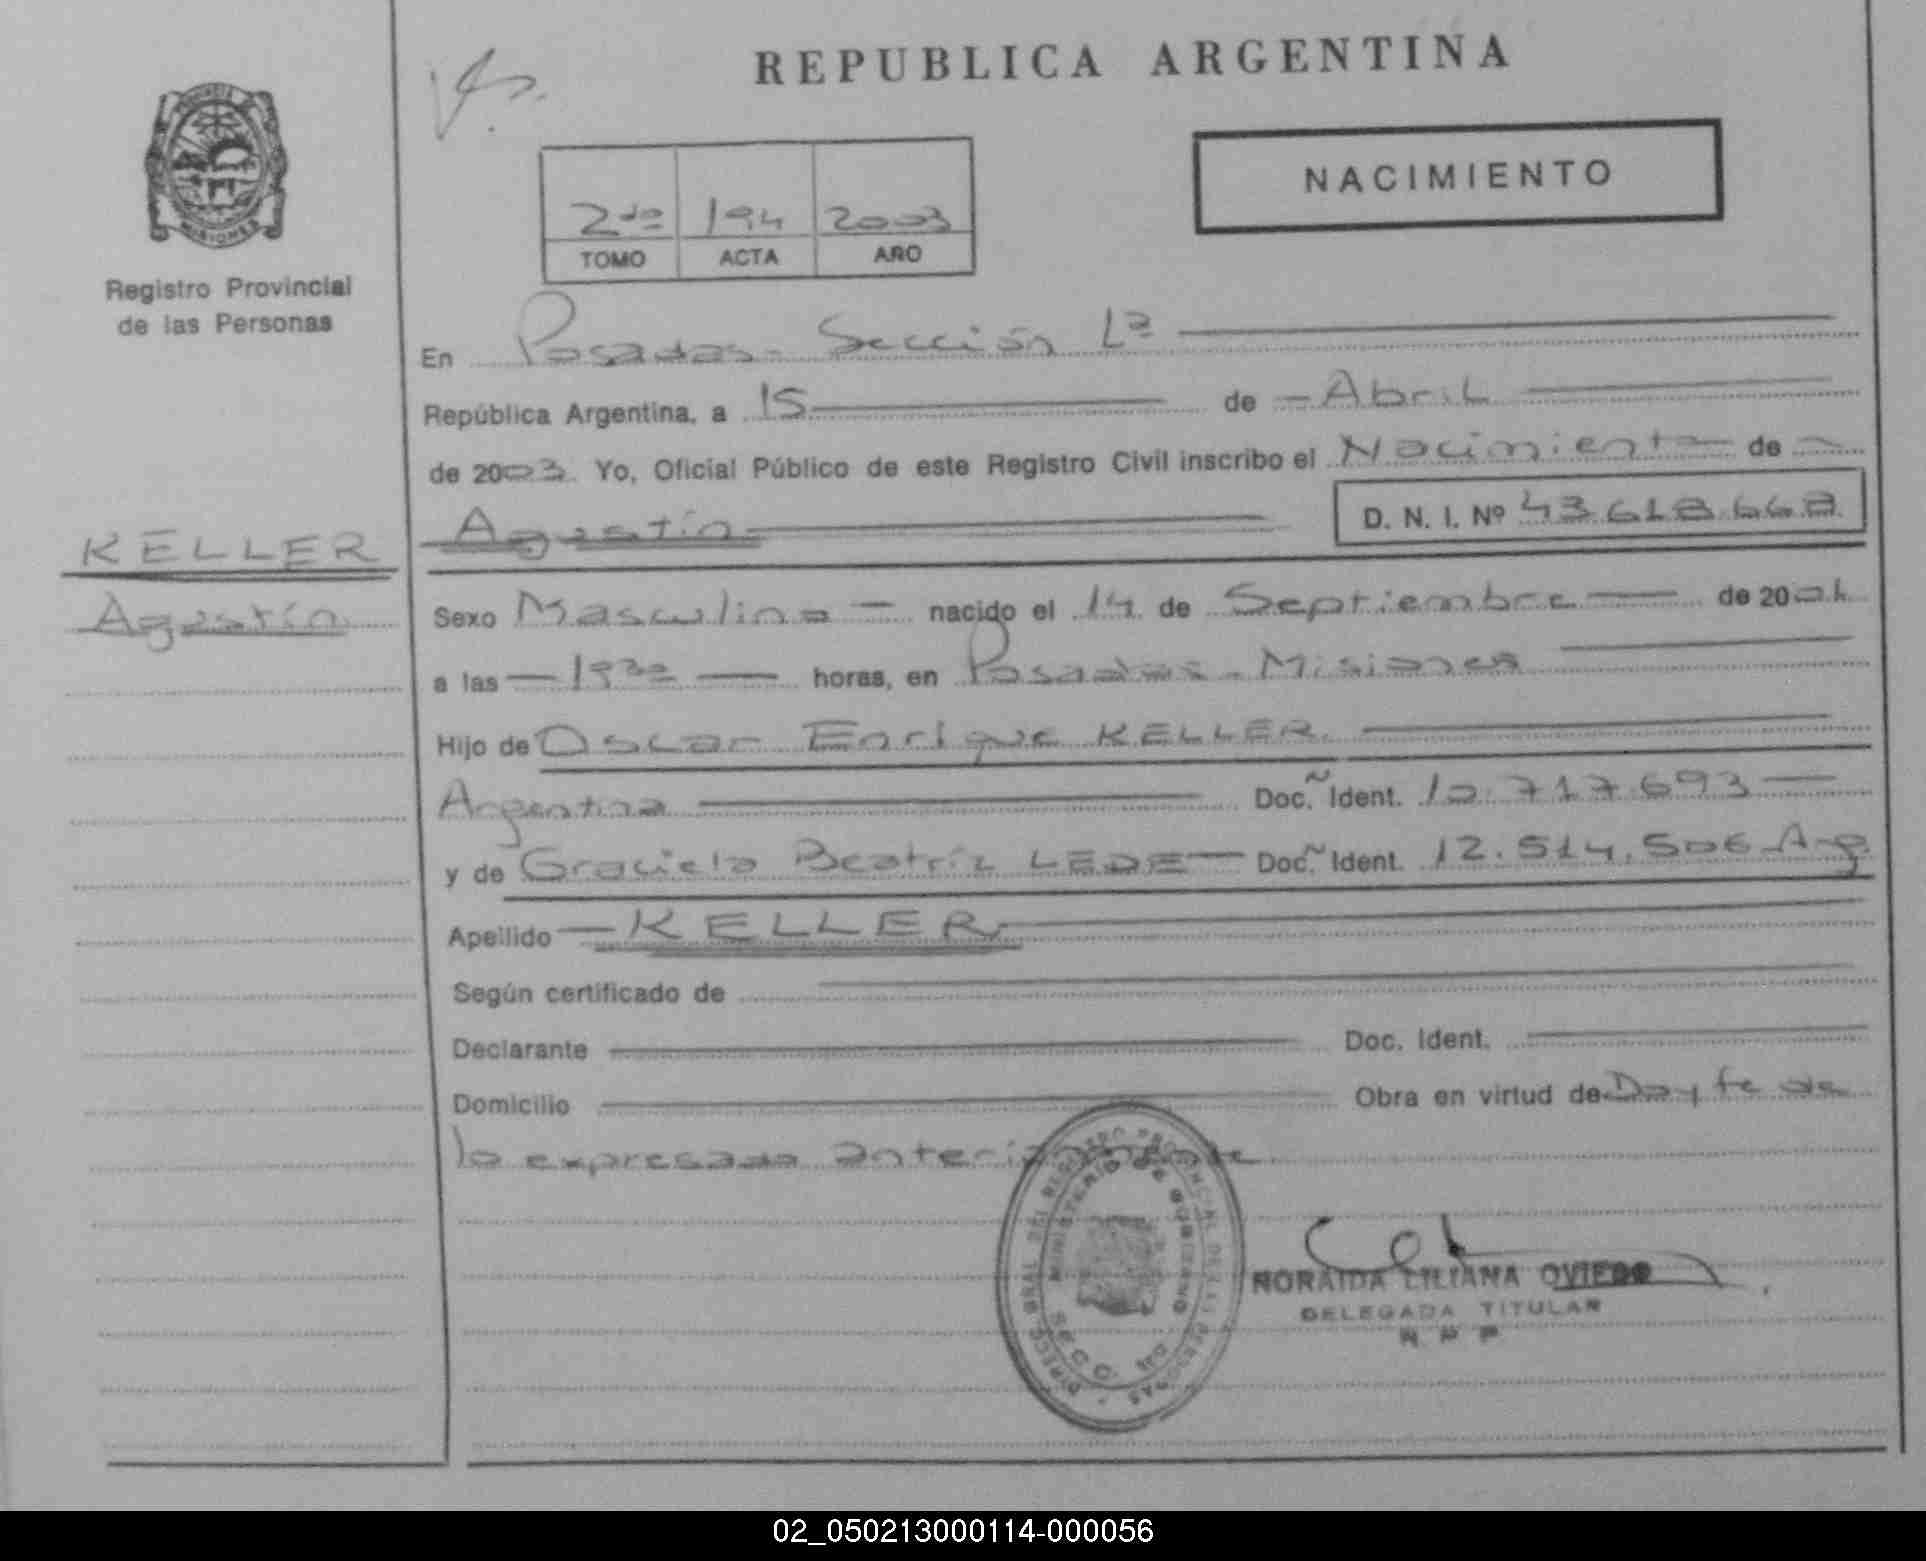 REPUBLICA ARGENTINA
PROVINCIA DE
MISIONES
Registro Provincial
de las Personas
2do 194 2003
TOMO ACTA AÑO
NACIMIENTO
En Posadas - Sección 1ª
República Argentina, a 15 de Abril
de 2003. Yo, Oficial Público de este Registro Civil inscribo el Nacimiento de
Agustín D. N. I. Nº 43.618.668
KELLER
Agustín
Sexo Masculino nacido el 14 de Septiembre de 2001
a las 19³⁰ horas, en Posadas - Misiones
Hijo de Oscar Enrique KELLER
Argentina Doc. Ident. 10.717.693
y de Graciela Beatríz LEDE Doc. Ident. 12.514.506 Arg.
Apellido KELLER
Según certificado de
Declarante Doc. Ident.
Domicilio Obra en virtud de Doy fe de
lo expresado anteriormente
MINISTERIO DE GOBIERNO
NORAIDA LILIANA OVIEDO
DELEGADA TITULAR
R P P
02_050213000114-000056